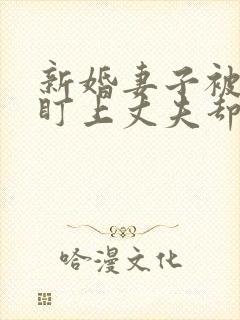 新婚妻子被
盯上丈夫却
哈漫文化